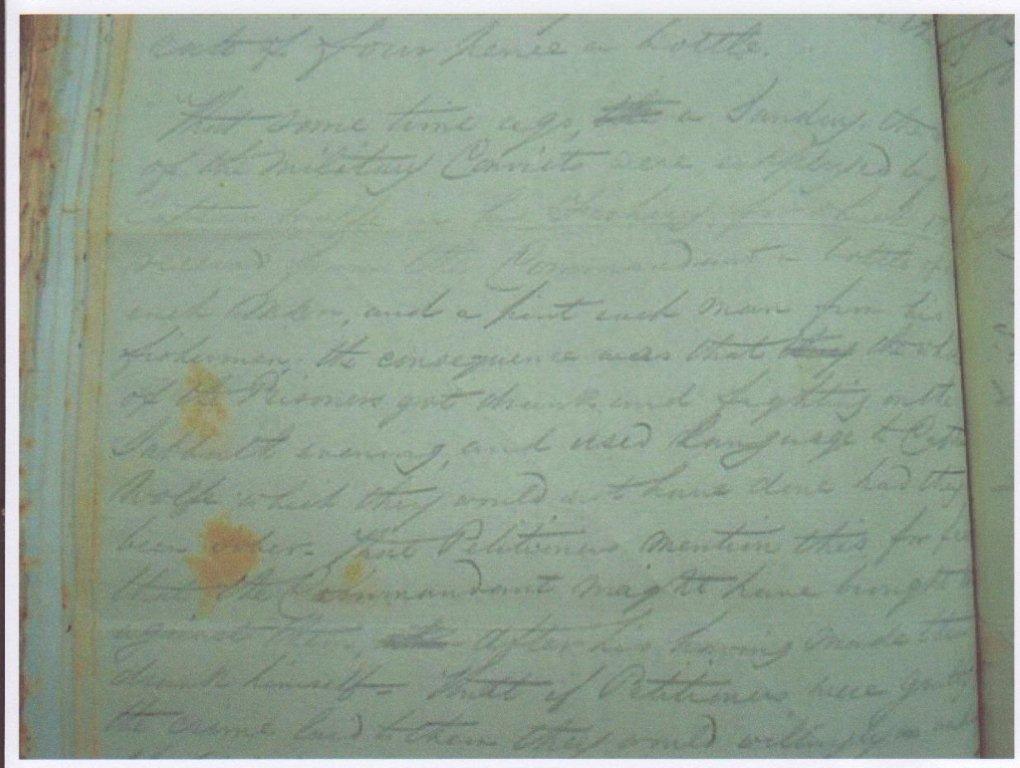 of four pence a bottle.
That some time ago, a Sunday, the
of the Military Convicts were employed by
in his Fishery, for which
received from the Commandant a bottle of
each taken, and a pint each man from his
fishermen. The consequence was that they the
of the Prisoners got drunk and fighting on the
Sabbath evening, and used Language to Capt
Wolfe which they would not have done had they
been sober. That Petitioners mention this for fear
that the Commandant might have brought it
against them, after his having made them
drunk himself. That if Petitioners were guilty
the crime laid to them they would willingly